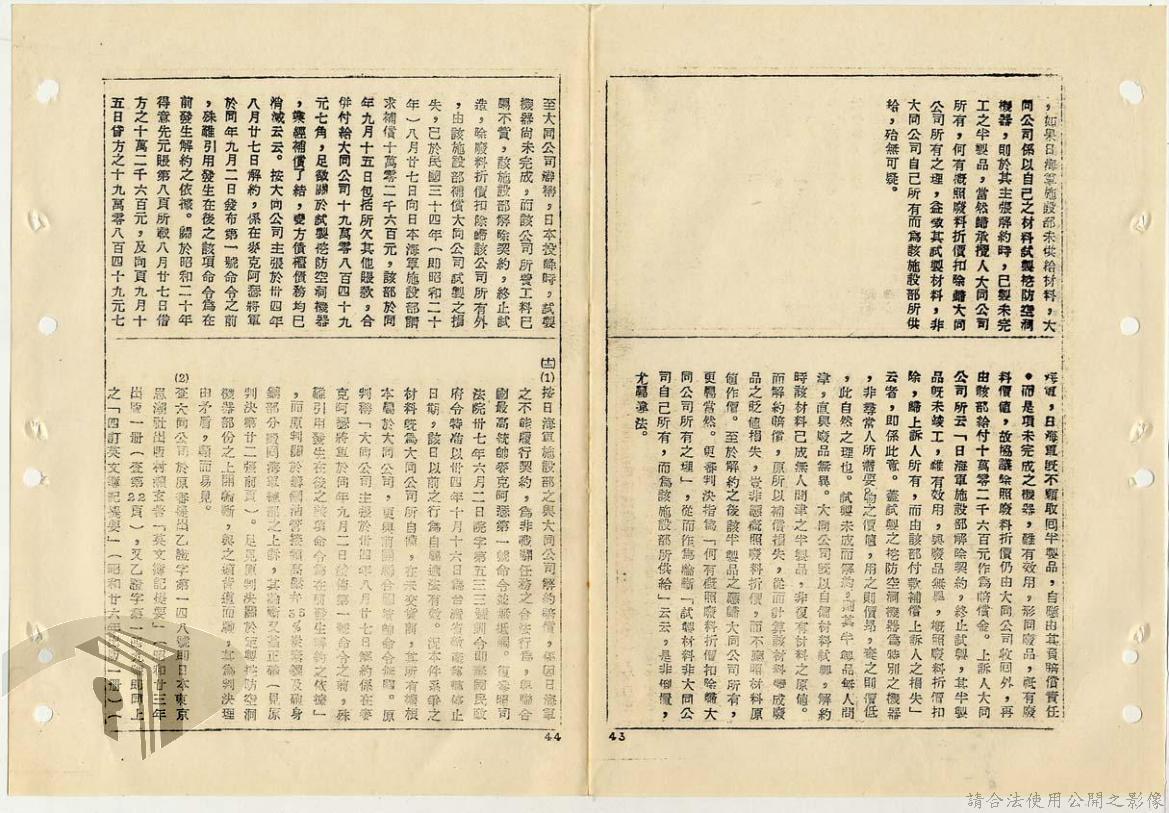 ，如果日海軍施設部未供給材料，大
同公司係以自己之材料試製挖防空洞
機器，則於其主張解約時，已製未完
工之半製品，當然歸承攬人大同公司
所有，何有概照廢料折價扣除歸大同
公司所有之理，益徵其試製材料，非
大同公司自己所有而為該施設部所供
給，殆無可疑。
海軍，日海軍既不願取回半製品，自應由其負賠償責任
。而是項未完成之機器，雖有效用，形同廢品，祇有廢
料價值，故協議除照廢料折價仍由大同公司收回外，再
由該部給付十萬零二千六百元作為賠償金。上訴人大同
公司所云「日海軍施設部解除契約，終止試製，其半製
品既未竣工，雖有效用，與廢品無異，概照廢料折價扣
除，歸上訴人所有，而由該部付款補償上訴人之損失」
云者，即係此意。蓋試製之挖防空洞機器為特別之機器
，非尋常人所需要
之價值，用之則價昂，棄之則價低
，此自然之理也。試製未成而解約，則其半製品無人問
津，直與廢品無異。大同公司既以自備材料試製，解約
時該材料已成無人問津之半製品，非復有材料之原值。
而解約賠償，原所以補償損失，從而計算該材料變成廢
品之貶值損失，豈非應概照廢料折價，而不應照材料原
值作價。至於解約之後該半製品之應歸大同公司所有，
更屬當然。更審判決指為「何有概照廢料折價扣除歸大
同公司所有之理」，從而作為論斷「試製材料非大同公
司自己所有，而為該施設部所供給」云云，是非倒置，
尤屬違法。
43
至大同公司辯稱，日本投降時，試製
機器尚未完成，而該公司所費工料已
屬不貲，該施設部解除契約，終止試
造，除廢料折價扣除歸該公司所有外
，由該施設部補償大同公司試製之損
失，已於民國三十四年（即昭和二十
年）八月廿七日向日本海軍施設部請
求補償十萬零二千六百元，該部於同
年九月十五日包括所欠其他賬款，合
併付給大同公司十九萬零八百四十九
元七角，足徵關於試製挖防空洞機器
，業經補償了結，雙方債權債務均已
消滅云云。按大同公司主張於卅四年
八月廿七日解約，係在麥克阿瑟將軍
於同年九月二日發布第一號命令之前
，殊難引用發生在後之該項命令為在
前發生解約之依據。關於昭和二十年
得意先元賬第八頁所載八月廿七日借
方之十萬二千六百元，及同頁九月十
五日貸方之十九萬零八百四十九元七
(1)按日海軍施設部之與大同公司解約賠償，係因日海軍
之不能履行契約，為非戰鬪任務之合法行為，與聯合
國最高統帥麥克阿瑟第一號命令並無抵觸。復查鄰司
法院卅七年六月二日院字第五三三號訓令即准國民政
府令特准以卅四年十月十六日為台灣省
停止
日期，該日以前之行為自屬適法有效。況本件係爭之
材料既為大同公司所自備，在未交貨前，其所有權根
本屬於大同公司，更與前開聯合國統帥命令無關。原
判稱「大同公司主張於卅四年八月廿七日解約係在麥
克阿瑟將軍於同年九月二日發佈第一號命令之前，殊
難引用發生在後之該項命令為在前發生解約之依據」
，而原判關於
身
部分發回海軍總部之上訴，其論斷又適正確（見原
判決第廿二張前頁）。足見原判決關於定製挖防空洞
機器部份之上開論斷，與之適背道而馳，其為判決理
由矛盾，顯而易見。
(2)查大同公司於原審提出乙證字第一四八號即日本東京
出版村瀨玄著「英文簿記提要」（昭和廿三年
出版）一冊（查第22頁），又乙證字第一四九號即同上
之「四訂英文簿記提要」（昭和廿六年
44
請合法使用公開之影像